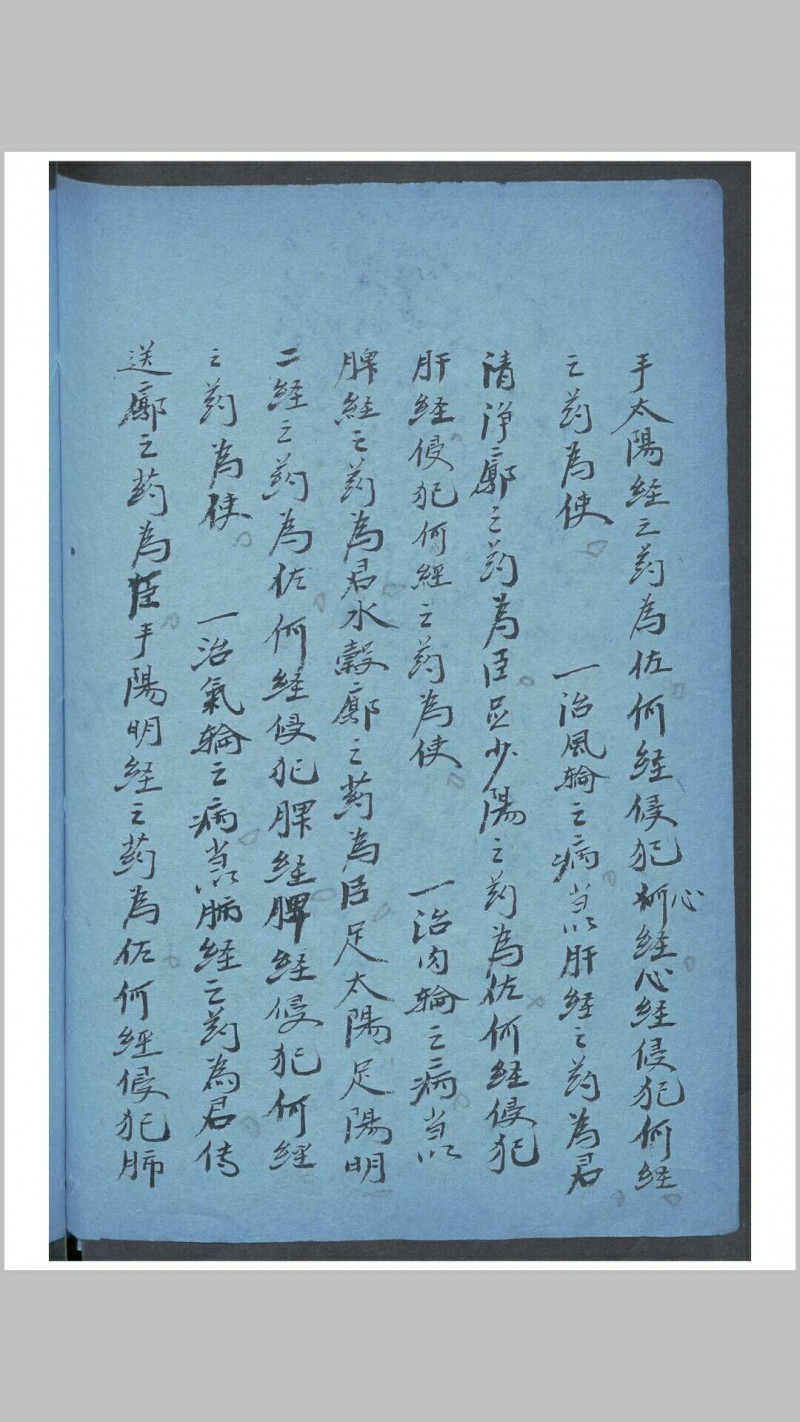 手太陽経之药為佐何経侵犯心経心経侵犯何経
之药為使　一治風輪之病当以肝経之药為君
清净廓之药為臣足少陽之药為佐何経侵犯
肝経侵犯何経之药為使　一治肉輪之病当以
脾経之药為君水穀廓之药為臣足太陽足陽明
二経之药為佐何経侵犯脾経脾経侵犯何経
之药為使　一治氣輪之病当以肺経之药為君传
送廓之药為臣手陽明経之药為佐何経侵犯肺